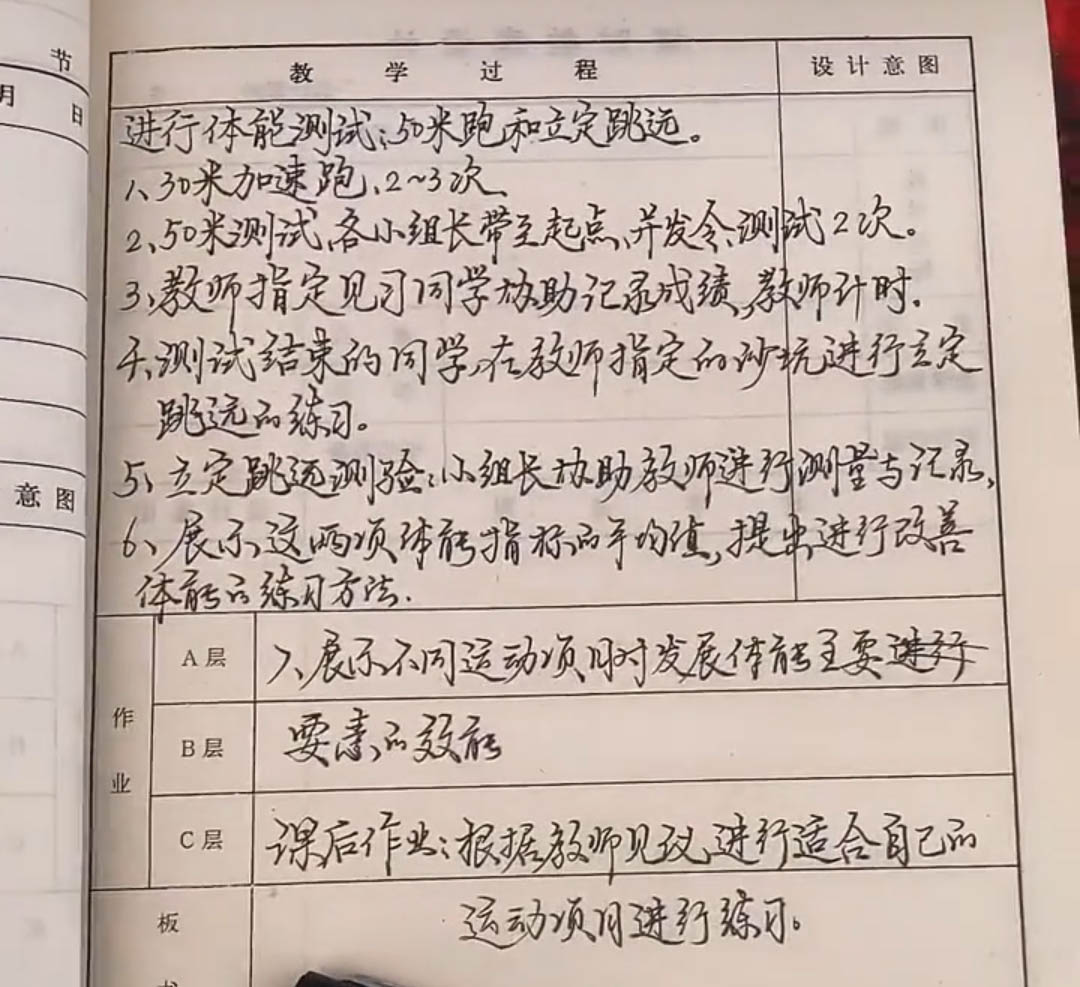 节
月 日
意图
教学过程 设计意图
进行体能测试:50米跑和立定跳远。
1、30米加速跑、2~3次
2、50米测试、各小组长带至起点、并发令、测试2次。
3、教师指定见习同学协助记录成绩,教师计时.
4、测试结束的同学,在教师指定的沙坑进行立定
跳远的练习。
5、立定跳远测验:小组长协助教师进行测量与记录,
6、展示这两项体能指标的平均值,提出进行改善
体能的练习方法.
作业
A层 7、展示不同运动项目对发展体能主要进行
B层 要素的效能
C层 课后作业:根据教师见议、进行适合自己的
板 运动项目进行练习。